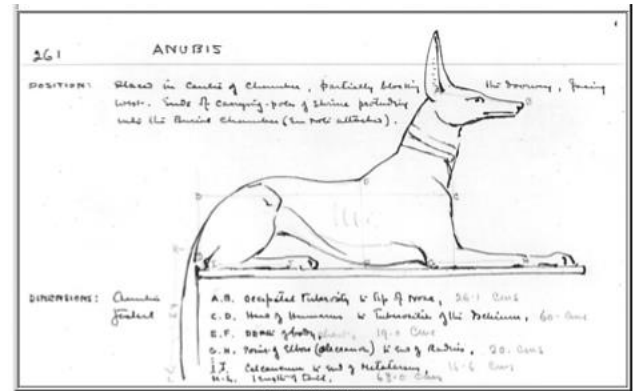 261 ANUBIS
POSITION: Placed in Centre of Chamber, partially blocking the doorway, facing
west. Ends of Carrying-poles of Shrine protruding
into the Burial Chamber (See Note attached).
D
DIMENSIONS: Anubis
A.B. Occipital Tuberosity to tip of Nose, 26.1 Cms
C.D. Head of Humerus to Tuberosities of the Ischium, 60. Cms
E.F. Depth of body, 19.0 Cms
G.H. Point of Elbow (olecranon) to end of Radius, 20. Cms
I.J. Calcaneum to end of Metatarsus, 16.6 Cms
K.L. length of tail, 68.0 Cms